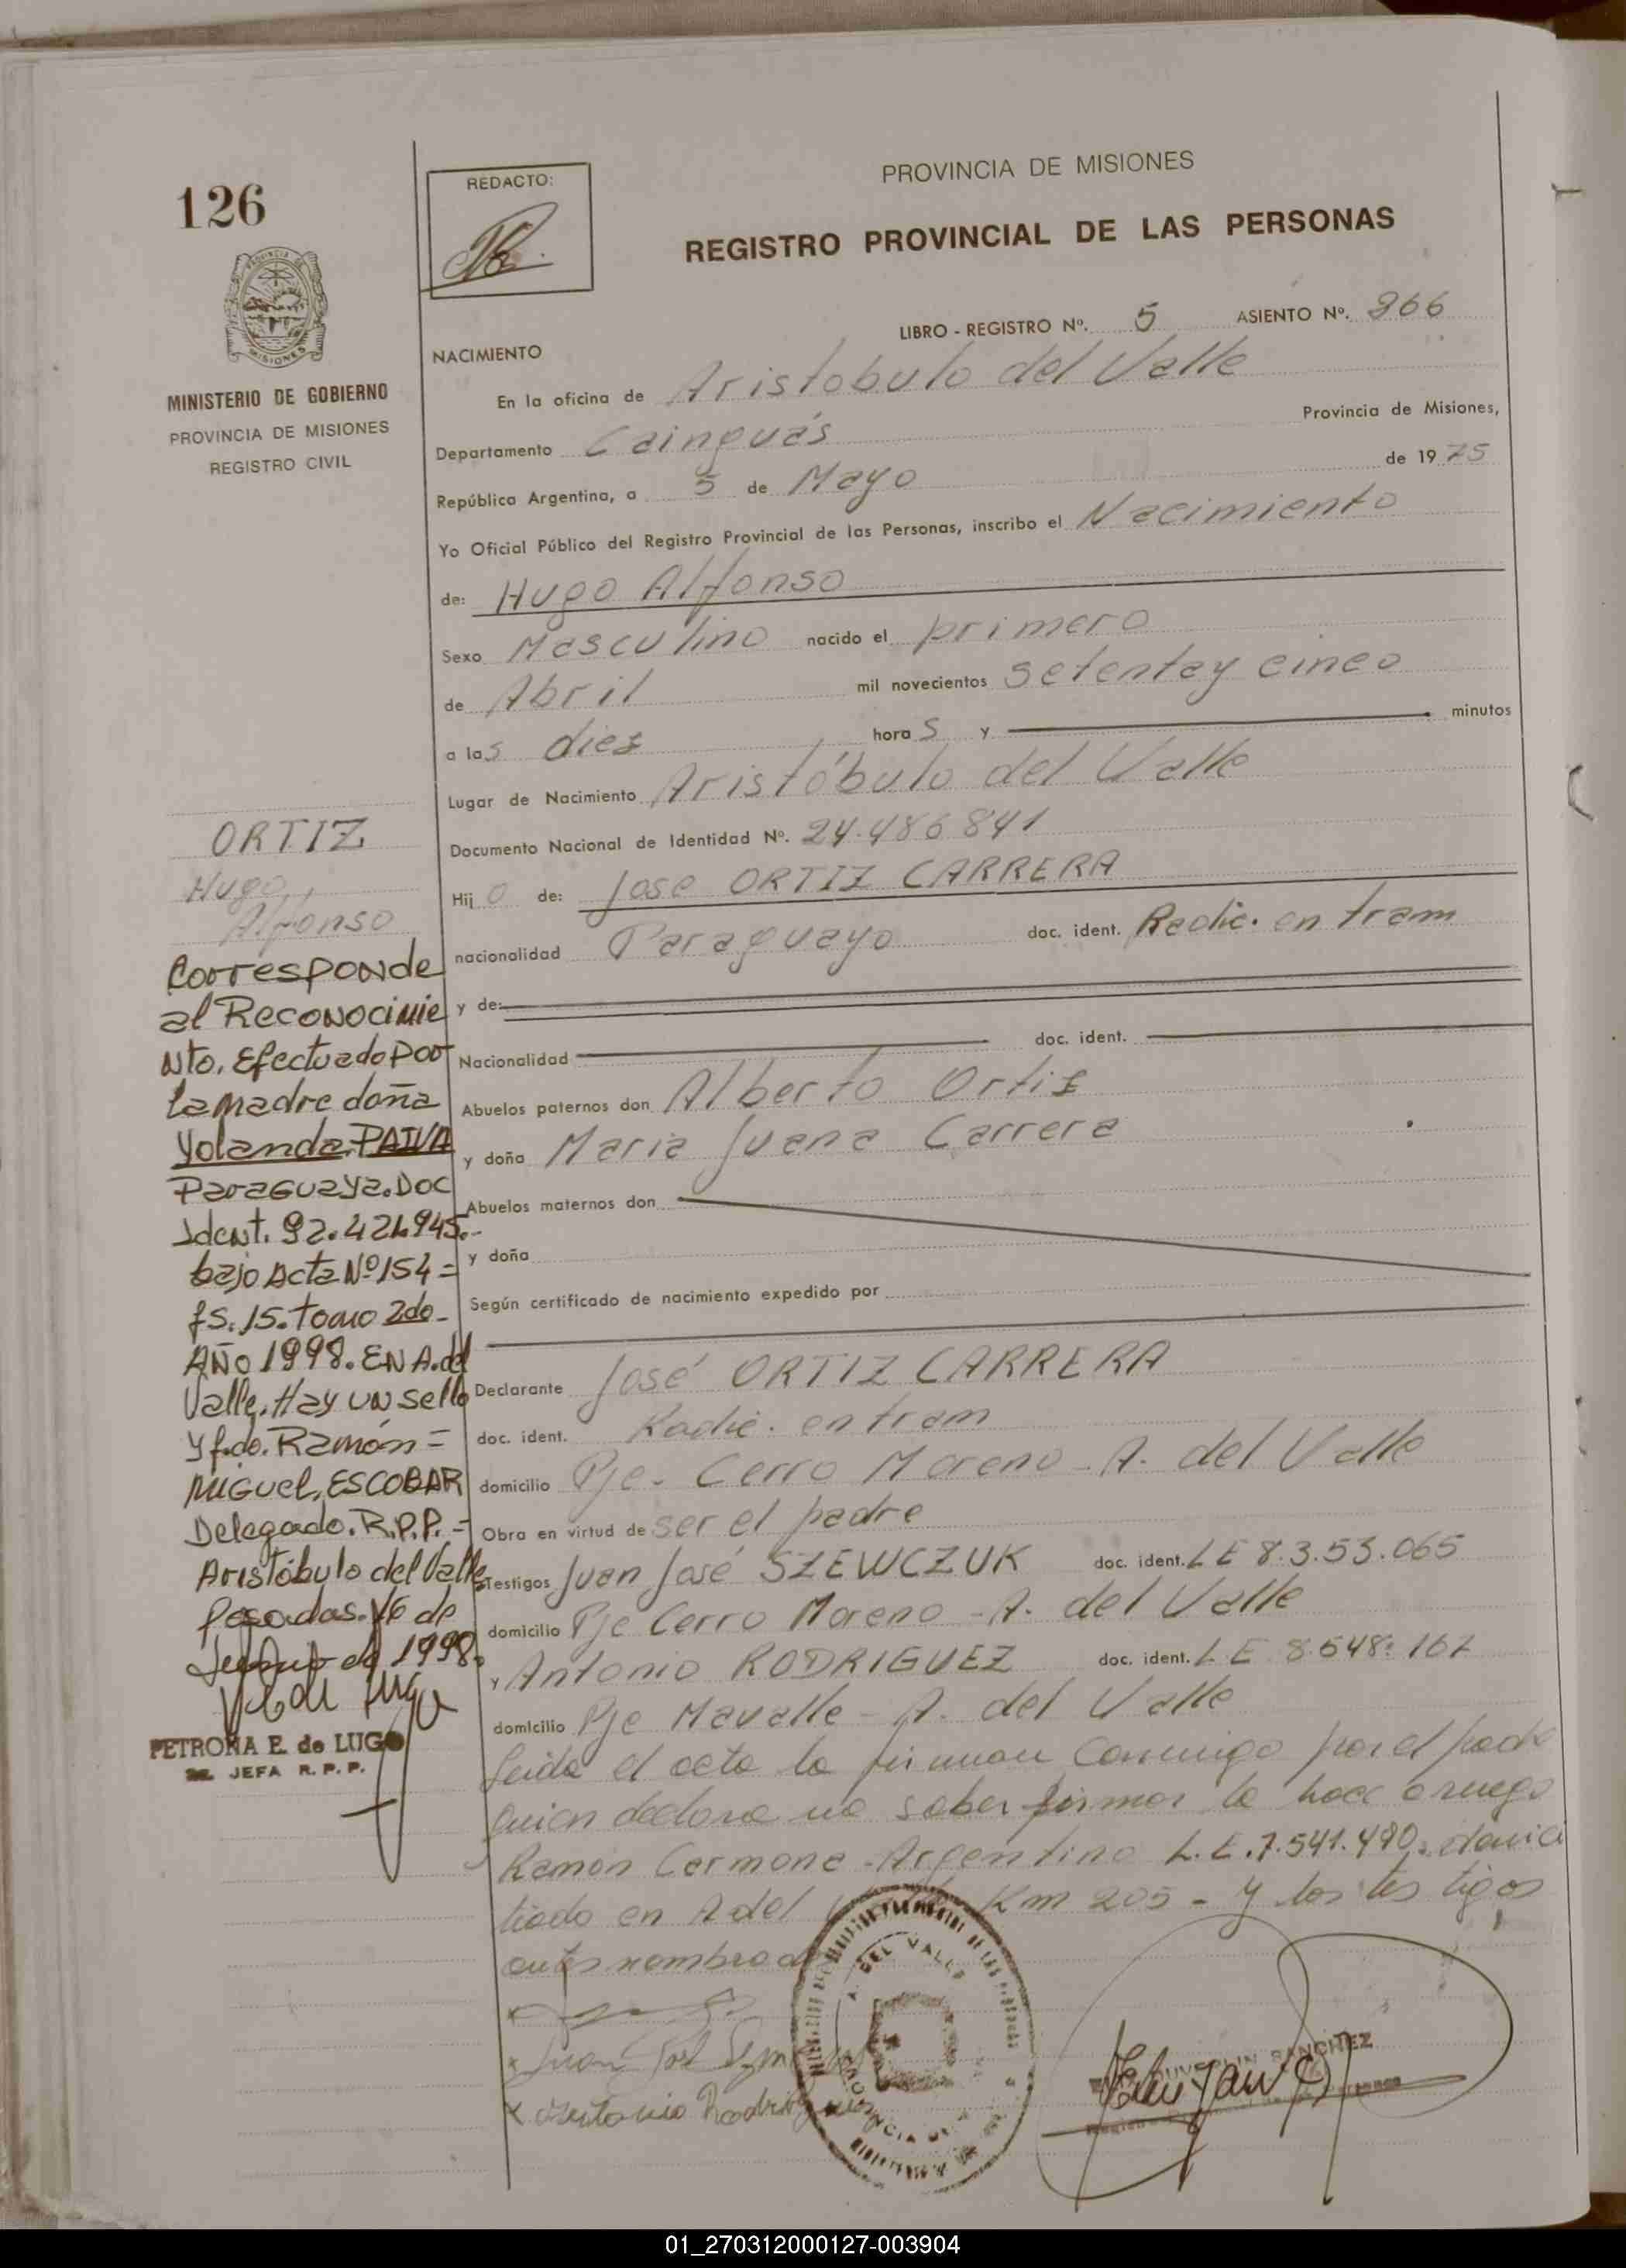 126
REDACTO:
PROVINCIA DE MISIONES
REGISTRO PROVINCIAL DE LAS PERSONAS
PROVINCIA DE
MISIONES
MINISTERIO DE GOBIERNO
PROVINCIA DE MISIONES
REGISTRO CIVIL
LIBRO - REGISTRO Nº. 5 ASIENTO Nº. 866
NACIMIENTO
En la oficina de Aristobulo del Valle
Departamento Cainguás Provincia de Misiones,
República Argentina, a 5 de Mayo de 1975
Yo Oficial Público del Registro Provincial de las Personas, inscribo el Nacimiento
de: Hugo Alfonso
Sexo Masculino nacido el primero
de Abril mil novecientos setentay cinco
a las diez horas y minutos
Lugar de Nacimiento Aristóbulo del Valle
Documento Nacional de Identidad Nº. 24.486841
Hijo de: Jose ORTIZ CARRERA
nacionalidad Paraguayo doc. ident. Radic. en tram
y de:
Nacionalidad doc. ident.
Abuelos paternos don Alberto Ortiz
y doña Maria Juana Carrera
Abuelos maternos don
y doña
Según certificado de nacimiento expedido por
Declarante José ORTIZ CARRERA
doc. ident. Radic. en tram
domicilio Pje. Cerro Moreno - A. del Valle
Obra en virtud de ser el padre
Testigos Juan José SZEWCZUK doc. ident. LE 8.3.53.065
domicilio Pje Cerro Moreno - A. del Valle
y Antonio RODRIGUEZ doc. ident. LE 8.548.167
domicilio Pje Mavalle - A. del Valle
Leida el acta la firman conmigo por el padre
quien declara no saber firmar lo hace a ruego
Ramón Carmona - Argentino L.E. 7.541.490. domici
liado en A del Km 205 - y los testigos
antes nombrados
ORTIZ
Hugo
Alfonso
Corresponde
al Reconocimie
Nto. Efectuado por
la madre doña
Yolanda PAIVA
Paraguaya. Doc
Ident. 92.421.945.-
bajo Acta Nº 154 =
fs. 15. Tomo 2do -
Año 1998. EN A. del
Valle. Hay un sello
y fdo. Ramón =
Miguel, ESCOBAR
Delegado. R.P.P. =
Aristóbulo del Valle
Posadas. 16 de
de 1998.
PETRONA E. de LUGO
JEFA R. P. P.
A. DEL VALLE
Antonio Rodriguez
SANCHEZ
01_270312000127-003904